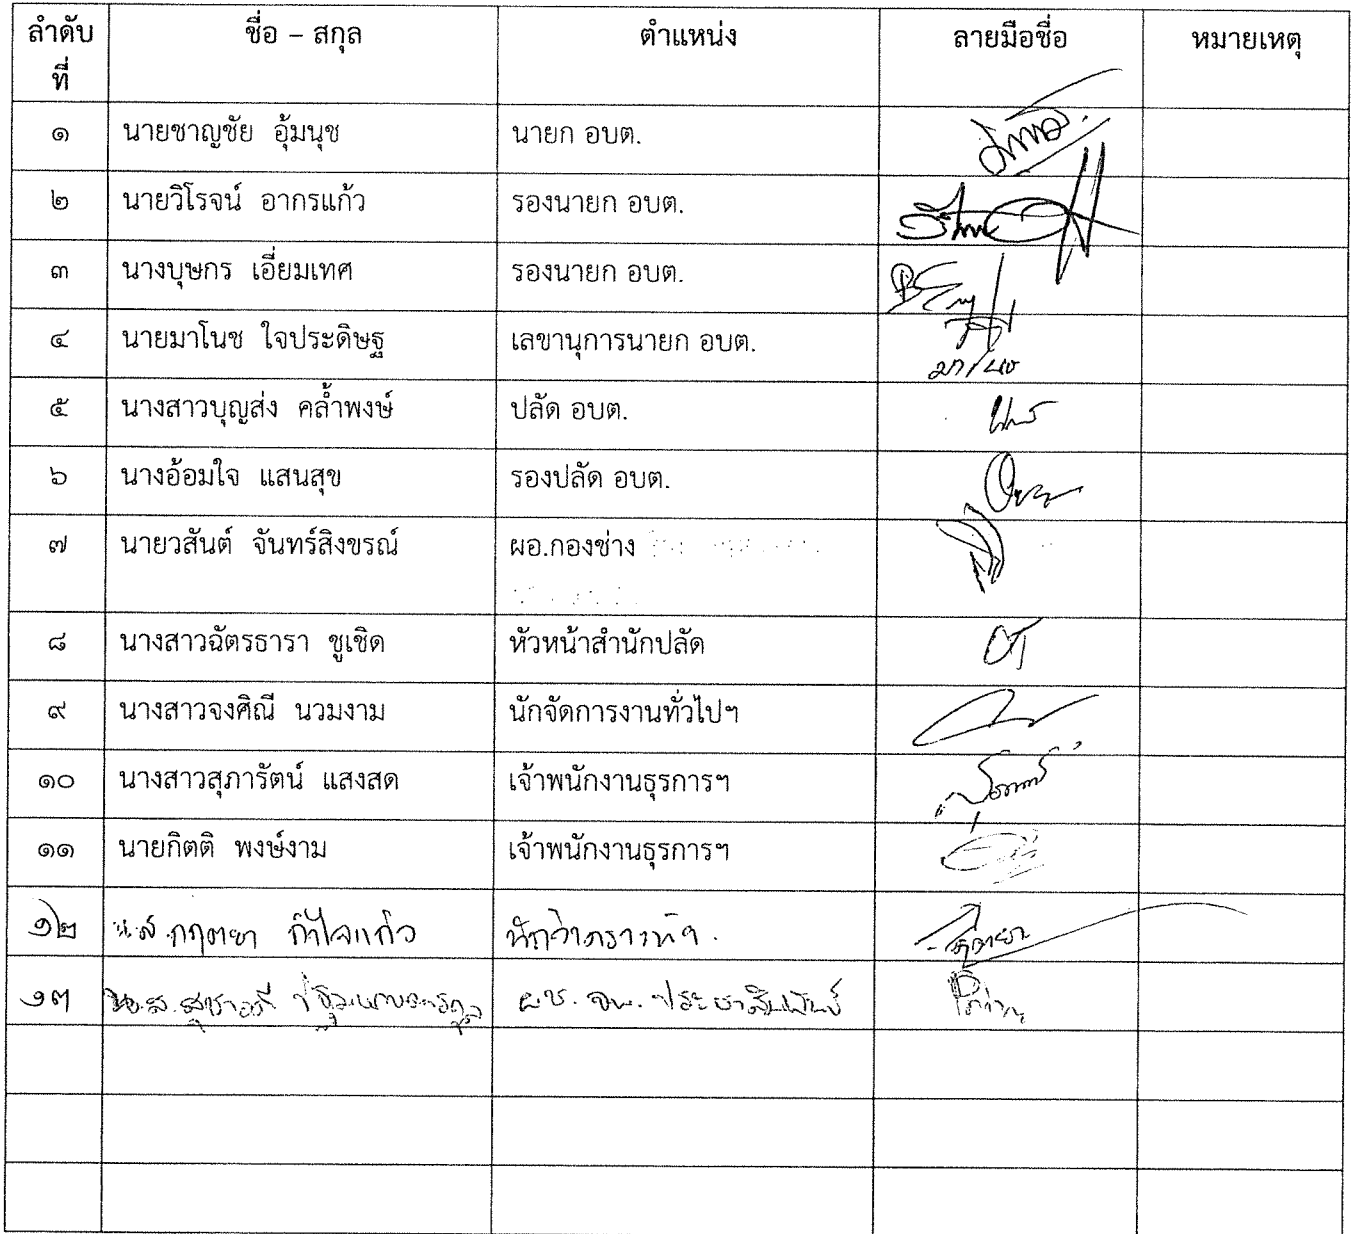 ลำดับที่ ชื่อ – สกุล ตำแหน่ง ลายมือชื่อ หมายเหตุ
๑ นายชาญชัย อุ้มนุช นายก อบต.
๒ นายวิโรจน์ อากรแก้ว รองนายก อบต.
๓ นางบุษกร เอี่ยมเทศ รองนายก อบต.
๔ นายมาโนช ใจประดิษฐ เลขานุการนายก อบต.
๕ นางสาวบุญส่ง คล้ำพงษ์ ปลัด อบต.
๖ นางอ้อมใจ แสนสุข รองปลัด อบต.
๗ นายวสันต์ จันทร์สิงขรณ์ ผอ.กองช่าง
๘ นางสาวฉัตรธารา ชูเชิด หัวหน้าสำนักปลัด
๙ นางสาวจงศิณี นวมงาม นักจัดการงานทั่วไปฯ
๑๐ นางสาวสุภารัตน์ แสงสด เจ้าพนักงานธุรการฯ
๑๑ นายกิตติ พงษ์งาม เจ้าพนักงานธุรการฯ
๑๒ น.ส.กฤตยา
๑๓ น.ส. ผช. จพ. ประชาสัมพันธ์